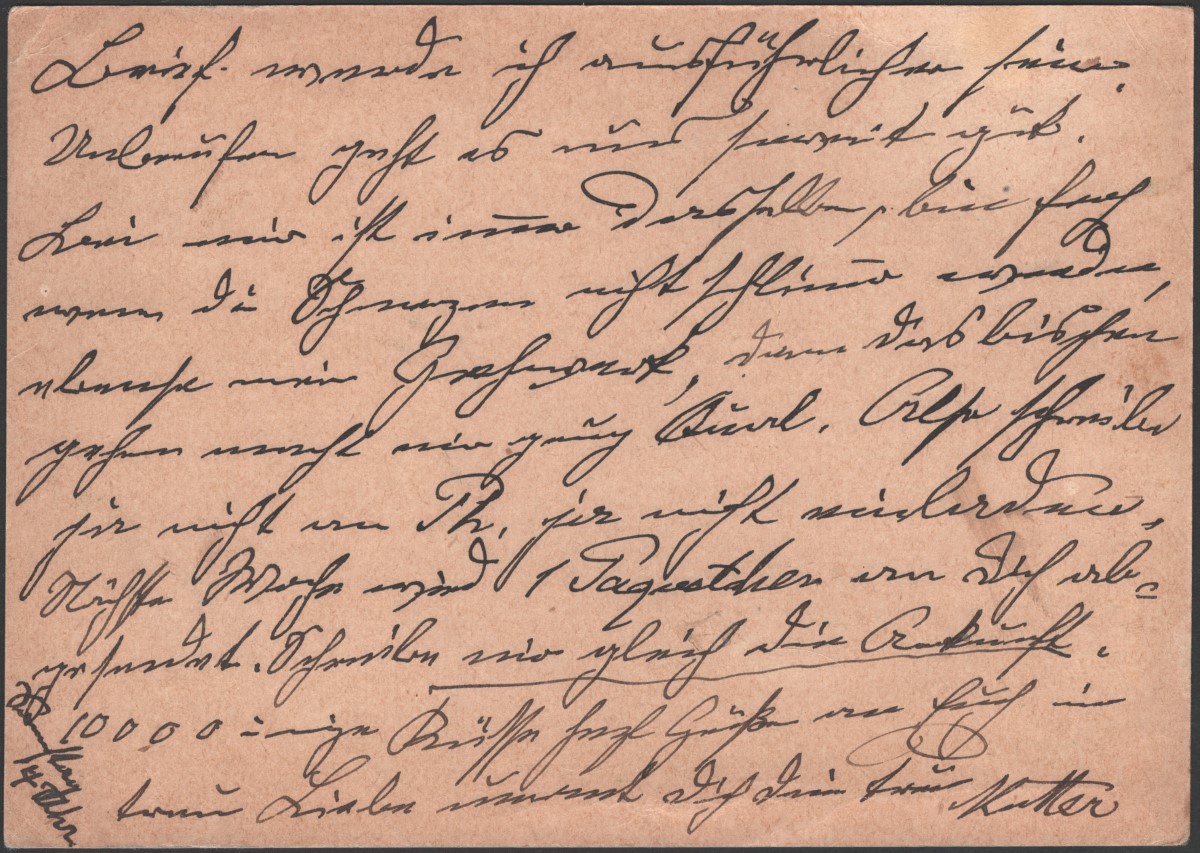 Brief werde ich ausführlicher sein.
Unberufen geht es uns soweit gut.
Bei mir ist immer dasselbe, bin froh
wenn die Schmerzen nicht schlimmer werden,
ebenso mein Gehwerk, denn das bischen
gehen macht mir genug Qual. Also schreibe
ja nicht an Th, ja nicht einladen.
Nächste Woche wird 1 Paquetchen an Dich ab=
gesendet. Schreibe mir gleich die Ankunft.
10000 innige Küsse herzl Grüße an Euch in
treuer Liebe umarmt Dich Deine treue Mutter
Uhr